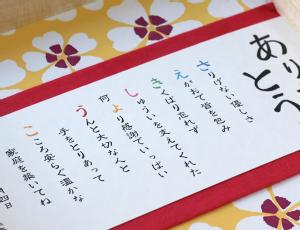 ありがとう
さりげない優しさ
えがおで皆を包み
きくばり忘れず
しゅういを支えてくれた
何より感謝でいっぱい
うんと大切な人と
手をとりあって
こころ安らぐ温かな
家庭を築いてね